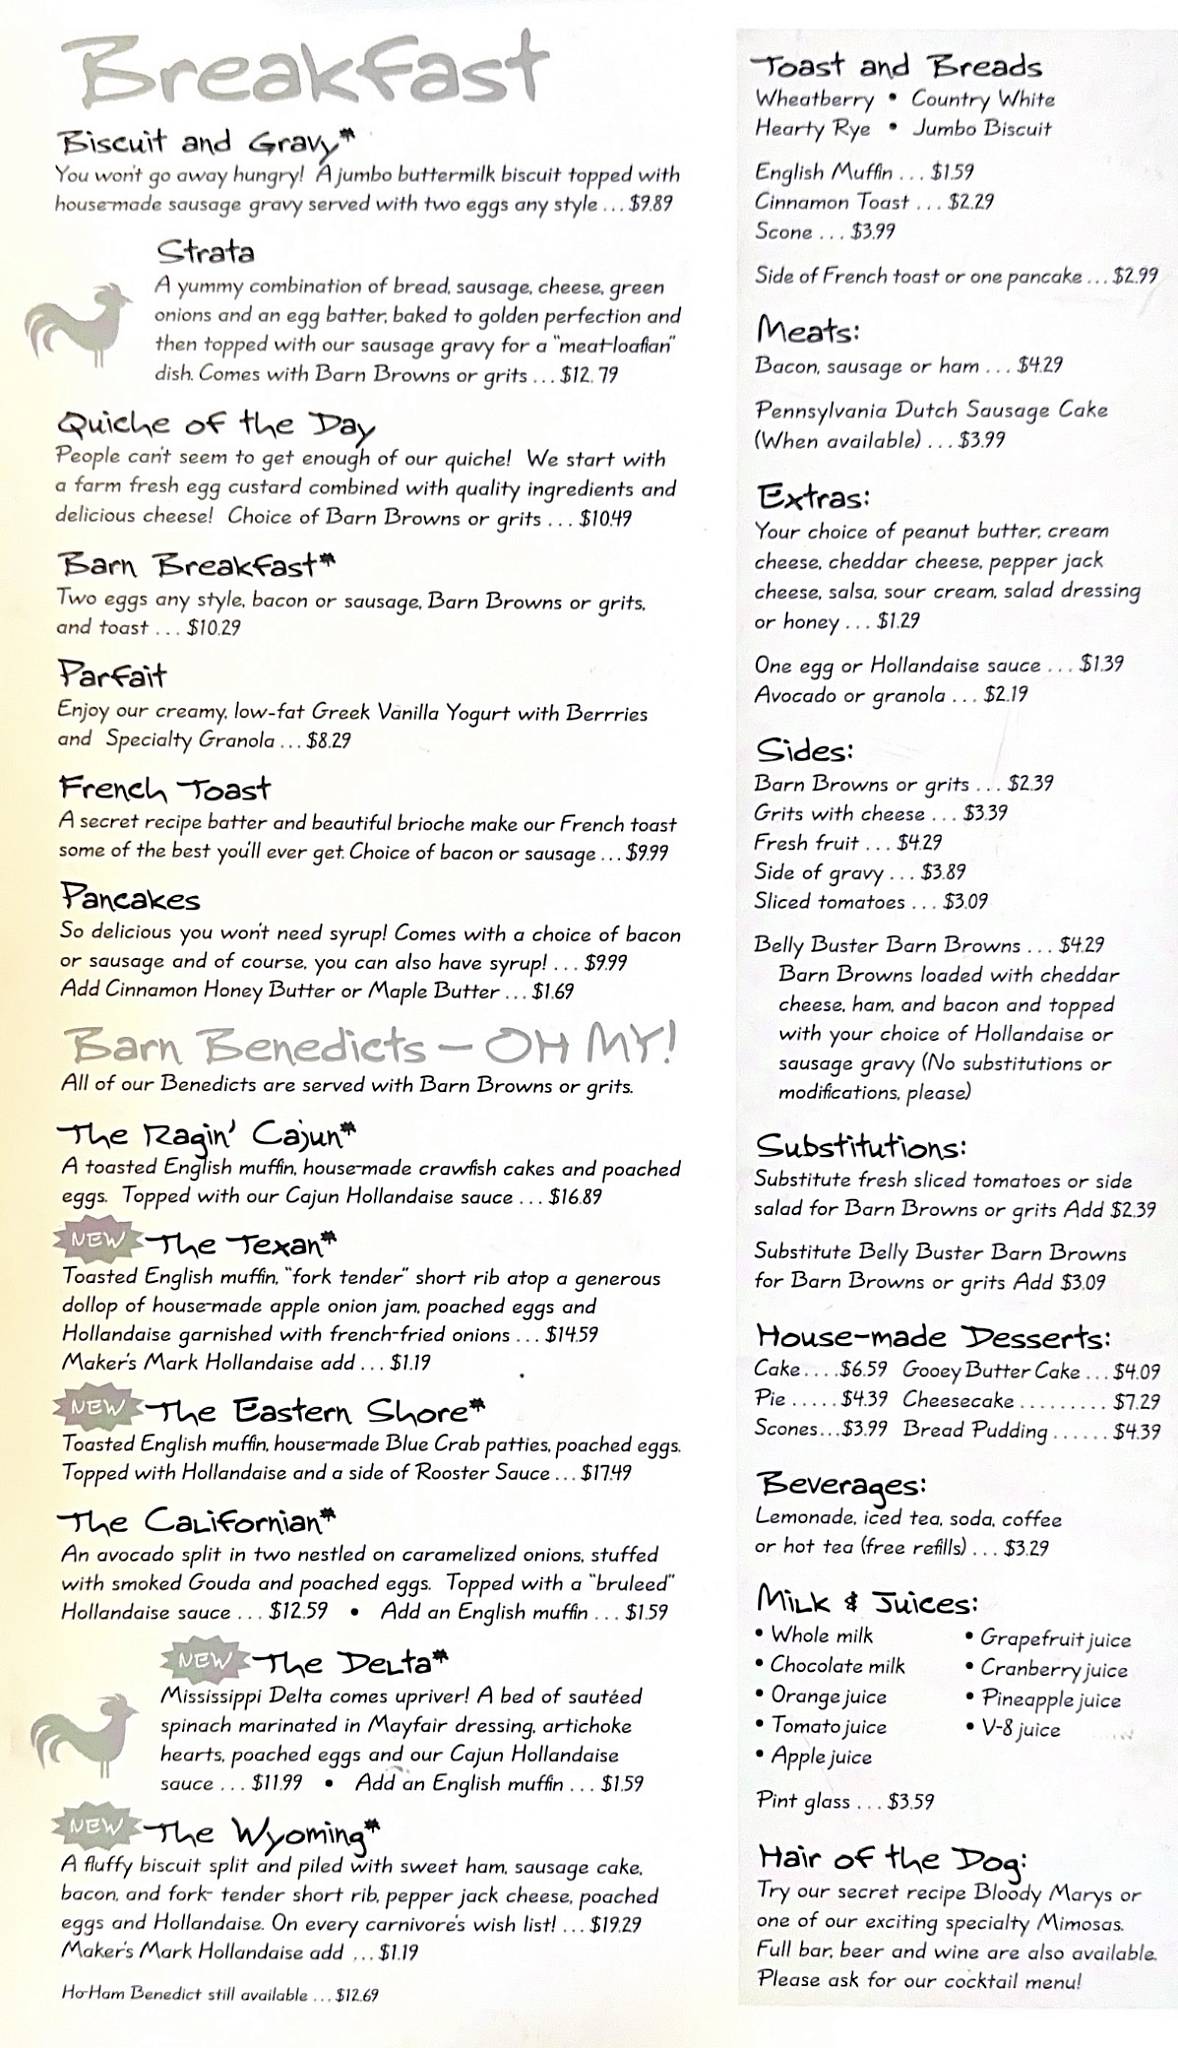 Breakfast
Biscuit and Gravy*
You won't go away hungry! A jumbo buttermilk biscuit topped with
house-made sausage gravy served with two eggs any style ... $9.89
Strata
A yummy combination of bread, sausage, cheese, green
onions and an egg batter, baked to golden perfection and
then topped with our sausage gravy for a "meat-loafian"
dish. Comes with Barn Browns or grits ... $12. 79
Quiche of the Day
People can't seem to get enough of our quiche! We start with
a farm fresh egg custard combined with quality ingredients and
delicious cheese! Choice of Barn Browns or grits ... $10.49
Barn Breakfast*
Two eggs any style, bacon or sausage, Barn Browns or grits,
and toast ... $10.29
Parfait
Enjoy our creamy, low-fat Greek Vanilla Yogurt with Berrries
and Specialty Granola ... $8.29
French Toast
A secret recipe batter and beautiful brioche make our French toast
some of the best you'll ever get. Choice of bacon or sausage ... $9.99
Pancakes
So delicious you won't need syrup! Comes with a choice of bacon
or sausage and of course, you can also have syrup! ... $9.99
Add Cinnamon Honey Butter or Maple Butter ... $1.69
Barn Benedicts – OH MY!
All of our Benedicts are served with Barn Browns or grits.
The Ragin' Cajun*
A toasted English muffin, house-made crawfish cakes and poached
eggs. Topped with our Cajun Hollandaise sauce ... $16.89
NEW The Texan*
Toasted English muffin, "fork tender" short rib atop a generous
dollop of house-made apple onion jam, poached eggs and
Hollandaise garnished with french-fried onions ... $14.59
Maker's Mark Hollandaise add ... $1.19
NEW The Eastern Shore*
Toasted English muffin, house-made Blue Crab patties, poached eggs.
Topped with Hollandaise and a side of Rooster Sauce ... $17.49
The Californian*
An avocado split in two nestled on caramelized onions, stuffed
with smoked Gouda and poached eggs. Topped with a "bruleed"
Hollandaise sauce ... $12.59 • Add an English muffin ... $1.59
NEW The Delta*
Mississippi Delta comes upriver! A bed of sautéed
spinach marinated in Mayfair dressing, artichoke
hearts, poached eggs and our Cajun Hollandaise
sauce ... $11.99 • Add an English muffin ... $1.59
NEW The Wyoming*
A fluffy biscuit split and piled with sweet ham, sausage cake,
bacon, and fork- tender short rib, pepper jack cheese, poached
eggs and Hollandaise. On every carnivore's wish list! ... $19.29
Maker's Mark Hollandaise add ... $1.19
Ho-Ham Benedict still available ... $12.69
Toast and Breads
Wheatberry • Country White
Hearty Rye • Jumbo Biscuit
English Muffin ... $1.59
Cinnamon Toast ... $2.29
Scone ... $3.99
Side of French toast or one pancake ... $2.99
Meats:
Bacon, sausage or ham ... $4.29
Pennsylvania Dutch Sausage Cake
(When available) ... $3.99
Extras:
Your choice of peanut butter, cream
cheese, cheddar cheese, pepper jack
cheese, salsa, sour cream, salad dressing
or honey ... $1.29
One egg or Hollandaise sauce ... $1.39
Avocado or granola ... $2.19
Sides:
Barn Browns or grits ... $2.39
Grits with cheese ... $3.39
Fresh fruit ... $4.29
Side of gravy ... $3.89
Sliced tomatoes ... $3.09
Belly Buster Barn Browns ... $4.29
Barn Browns loaded with cheddar
cheese, ham, and bacon and topped
with your choice of Hollandaise or
sausage gravy (No substitutions or
modifications, please)
Substitutions:
Substitute fresh sliced tomatoes or side
salad for Barn Browns or grits Add $2.39
Substitute Belly Buster Barn Browns
for Barn Browns or grits Add $3.09
House-made Desserts:
Cake....$6.59 Gooey Butter Cake ... $4.09
Pie ..... $4.39 Cheesecake ......... $7.29
Scones...$3.99 Bread Pudding ...... $4.39
Beverages:
Lemonade, iced tea, soda, coffee
or hot tea (free refills) ... $3.29
Milk & Juices:
• Whole milk
• Chocolate milk
• Orange juice
• Tomato juice
• Apple juice
• Grapefruit juice
• Cranberry juice
• Pineapple juice
• V-8 juice
Pint glass ... $3.59
Hair of the Dog:
Try our secret recipe Bloody Marys or
one of our exciting specialty Mimosas.
Full bar, beer and wine are also available.
Please ask for our cocktail menu!